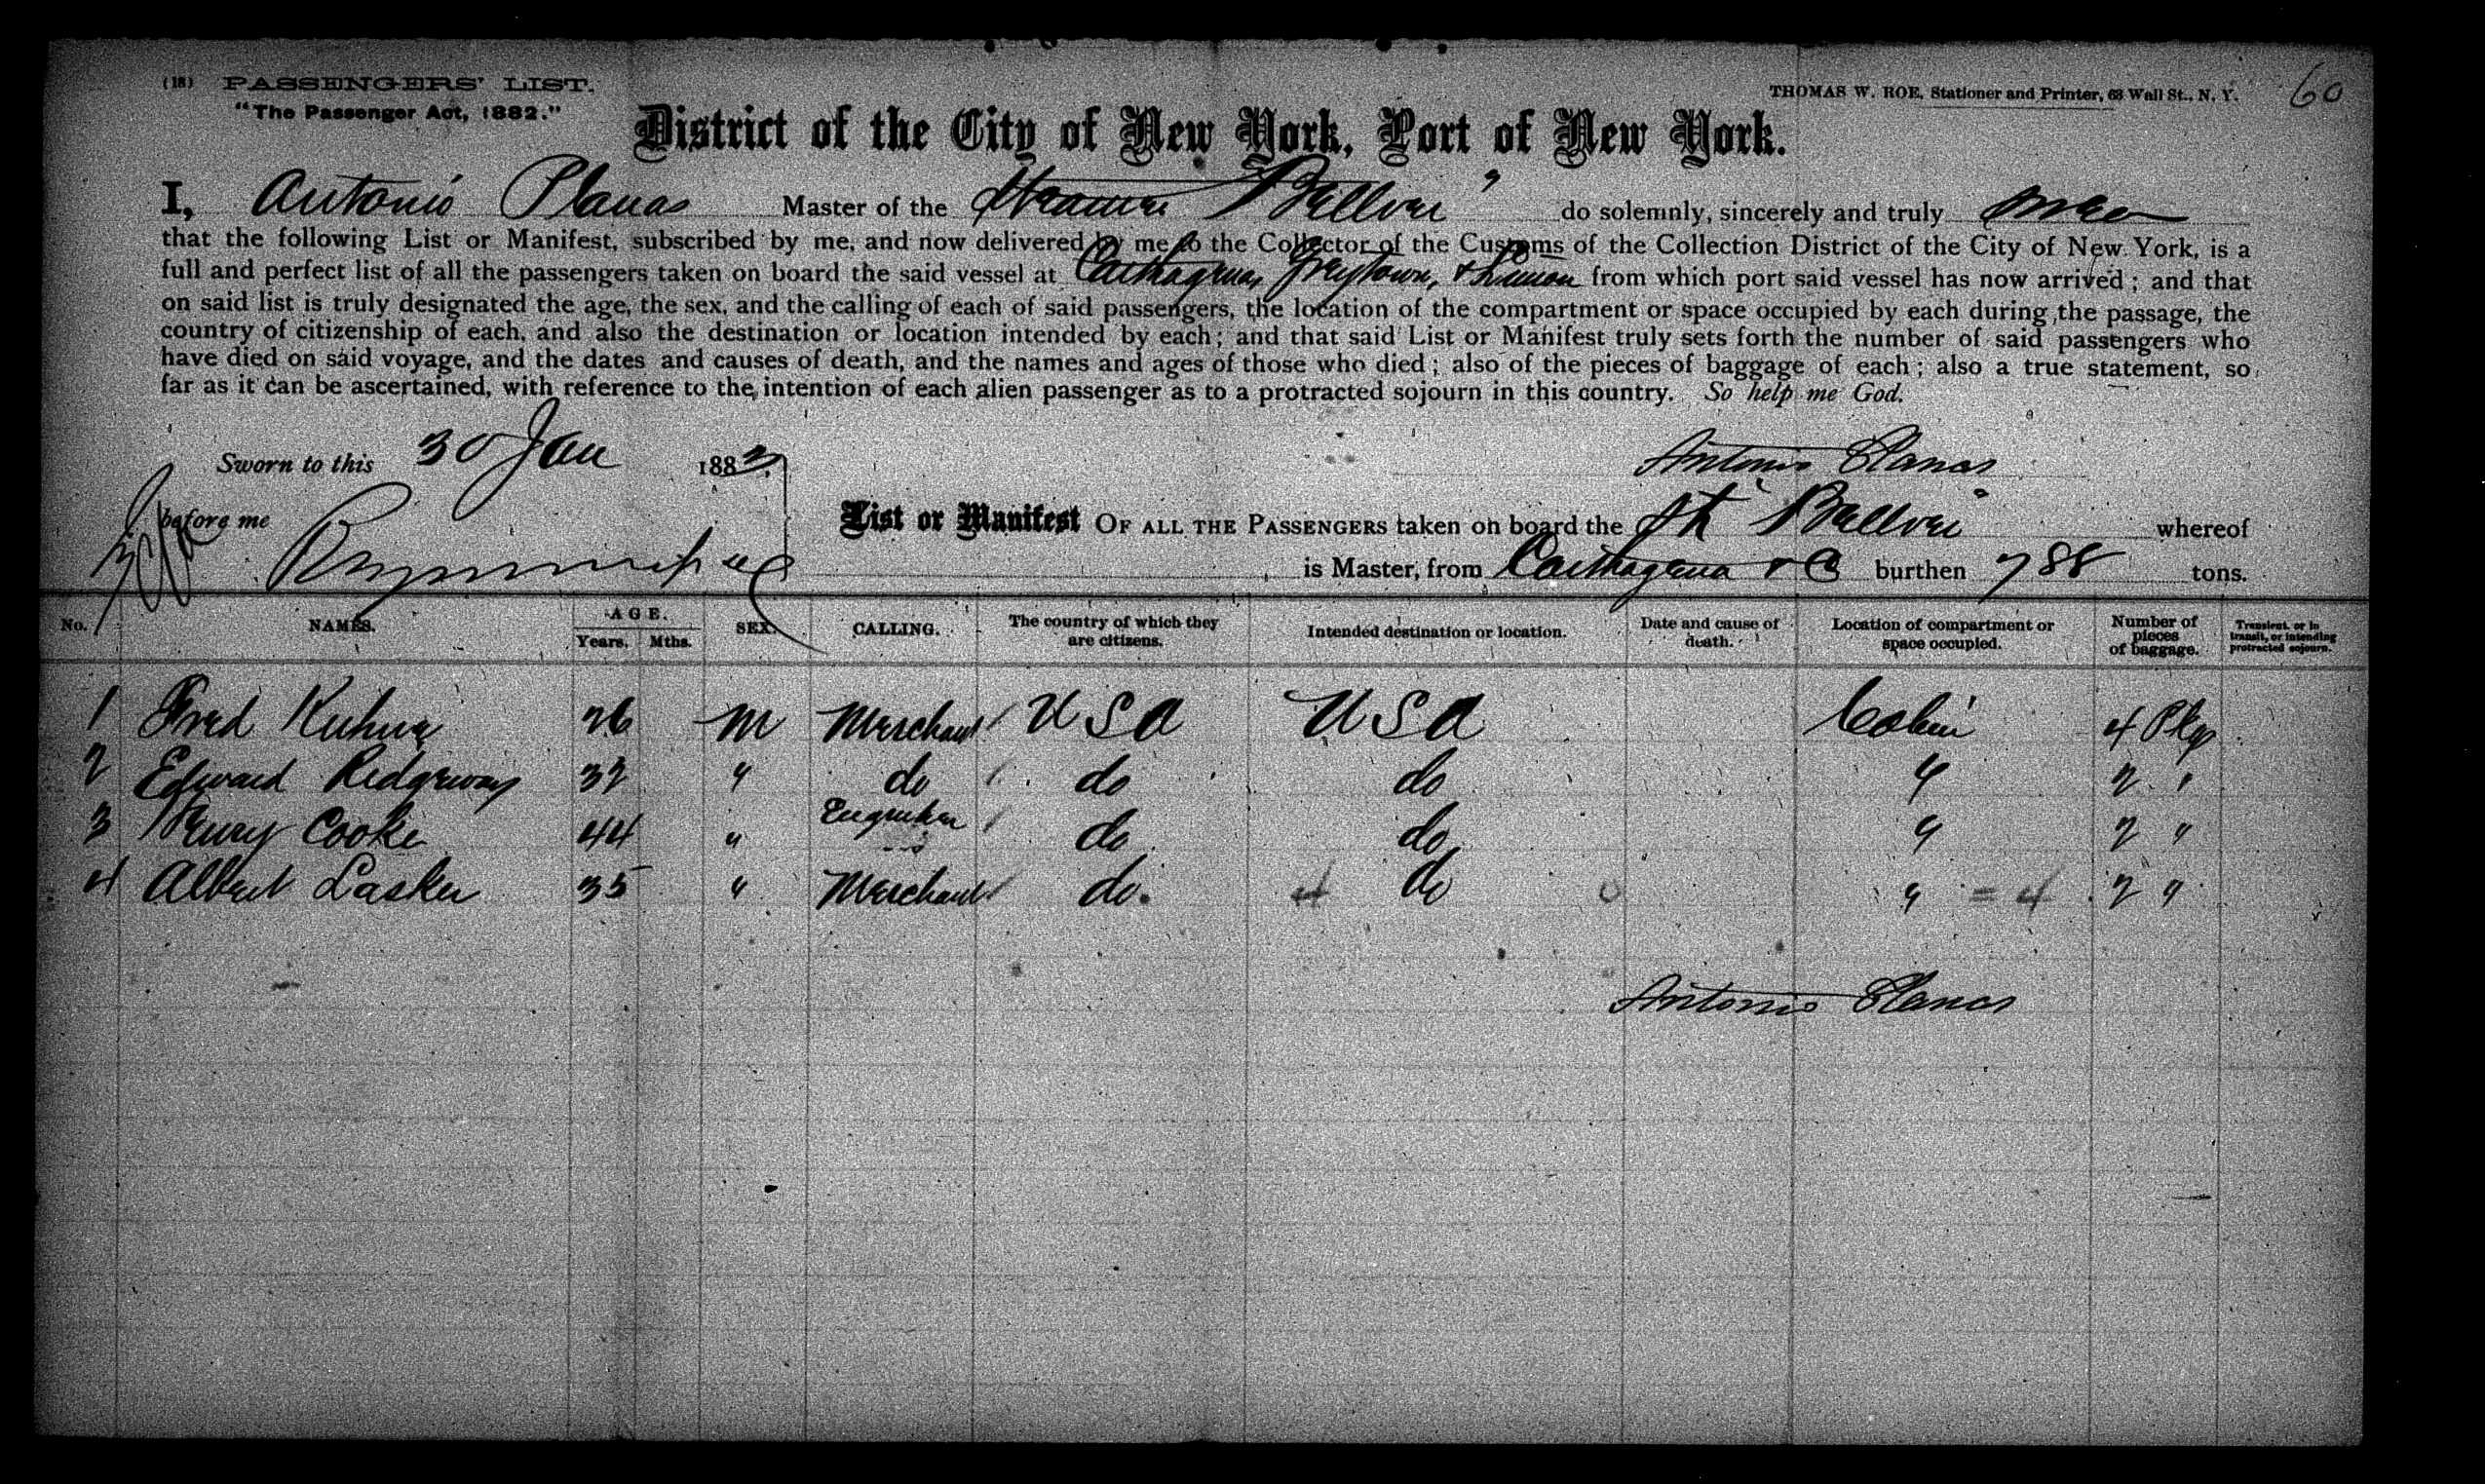 (18) PASSENGERS' LIST.
"The Passenger Act, 1882."
THOMAS W. ROE, Stationer and Printer, 63 Wall St., N. Y.
60
District of the City of New York, Port of New York.
I, Antonio Planas Master of the Steamer "Bellver" do solemnly, sincerely and truly swear
that the following List or Manifest, subscribed by me, and now delivered by me to the Collector of the Customs of the Collection District of the City of New York, is a
full and perfect list of all the passengers taken on board the said vessel at Carthagena, Greytown, & Limon from which port said vessel has now arrived; and that
on said list is truly designated the age, the sex, and the calling of each of said passengers, the location of the compartment or space occupied by each during the passage, the
country of citizenship of each, and also the destination or location intended by each; and that said List or Manifest truly sets forth the number of said passengers who
have died on said voyage, and the dates and causes of death, and the names and ages of those who died; also of the pieces of baggage of each; also a true statement, so
far as it can be ascertained, with reference to the intention of each alien passenger as to a protracted sojourn in this country. So help me God.
Sworn to this 30 Jan 1883
Antonio Planas
before me
List or Manifest OF ALL THE PASSENGERS taken on board the St "Bellver" whereof
is Master, from Carthagena & C burthen 788 tons.
No. NAMES. AGE. Years. Mths. SEX. CALLING. The country of which they are citizens. Intended destination or location. Date and cause of death. Location of compartment or space occupied. Number of pieces of baggage. Transient, or in transit, or intending protracted sojourn.
1 Fred 26 M Merchant USA USA Cabin 4 Pkgs
2 Edward Ridgeway 32 " do do do " 2 "
3 Henry Cooke 44 " Engineer do do " 2 "
4 Albert Lasker 35 " Merchant do. 4 do 0 " = 4 2 "
Antonio Planas